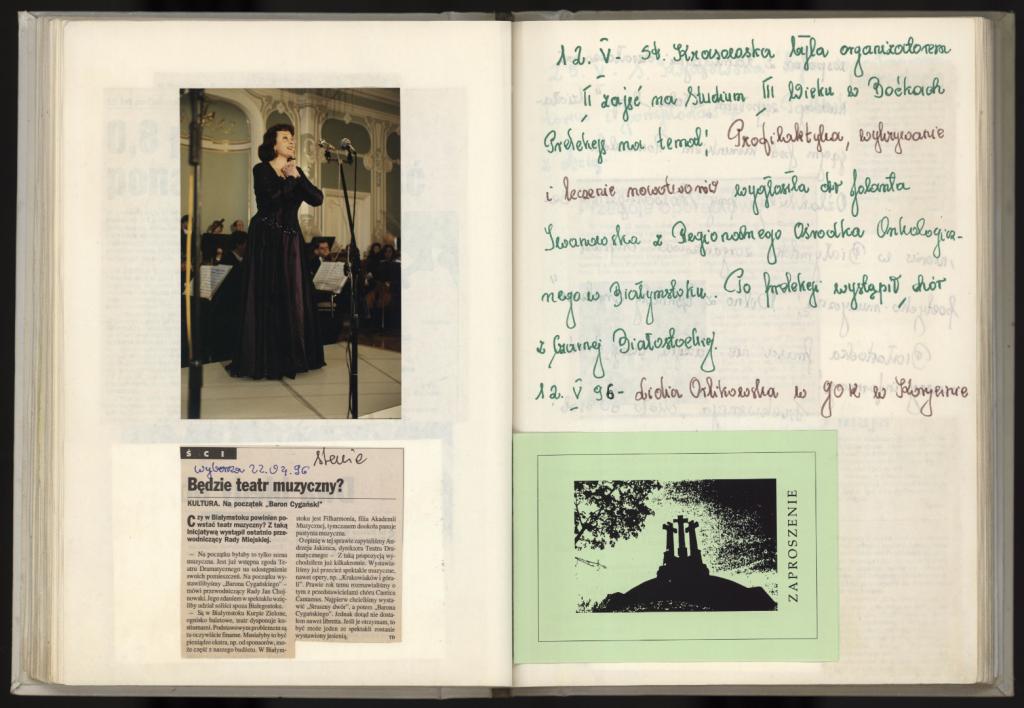 ŚCI
Wyborcza 22.04.96
Będzie teatr muzyczny?
KULTURA. Na początek „Baron Cygański”
Czy w Białymstoku powinien po-
wstać teatr muzyczny? Z taką
inicjatywą wystąpił ostatnio prze-
wodniczący Rady Miejskiej.
— Na początku byłaby to tylko scena
muzyczna. Jest już wstępna zgoda Te-
atru Dramatycznego na udostępnienie
swoich pomieszczeń. Na początku wy-
stawilibyśmy „Barona Cygańskiego” –
mówi przewodniczący Rady Jan Choj-
nowski. Jego zdaniem w spektaklu wzię-
liby udział soliści spoza Białegostoku.
— Są w Białymstoku Kurpie Zielone,
ognisko baletowe, teatr dysponuje ko-
stiumami. Podstawowym problemem są
tu oczywiście finanse. Musiałyby to być
pieniądze ekstra, np. od sponsorów, mo-
że część z naszego budżetu. W Białym-
stoku jest Filharmonia, filia Akademii
Muzycznej, tymczasem dookoła panuje
pustynia muzyczna.
O opinię w tej sprawie zapytaliśmy An-
drzeja Jakimca, dyrektora Teatru Dra-
matycznego: – Z taką propozycją wy-
chodziłem już kilkakrotnie. Wystawia-
liśmy już przecież spektakle muzyczne,
nawet opery, np. „Krakowiaków i góra-
li”. Prawie rok temu rozmawialiśmy o
tym z przedstawicielami chóru Cantica
Cantamus. Najpierw chcieliśmy wysta-
wić „Straszny dwór”, a potem „Barona
Cygańskiego”. Jednak dotąd nie dosta-
łem nawet libretta. Jeśli je otrzymam, to
być może jeden ze spektakli zostanie
wystawiony jesienią.
12. V - St. Krasowska była organizatorem
II zajęć na Studium III Wieku w Boćkach
Prelekcję na temat; Profilaktyka, wykrywanie
i leczenie nowotworów wygłosiła dr Jolanta
Iwanowska z Regionalnego Ośrodka Onkologicz-
nego w Białymstoku. Po prelekcji wystąpił chór
z Czarnej Białostockiej.
12. V 96 - Lidia Orlikowska w GOK w Korycinie
ZAPROSZENIE